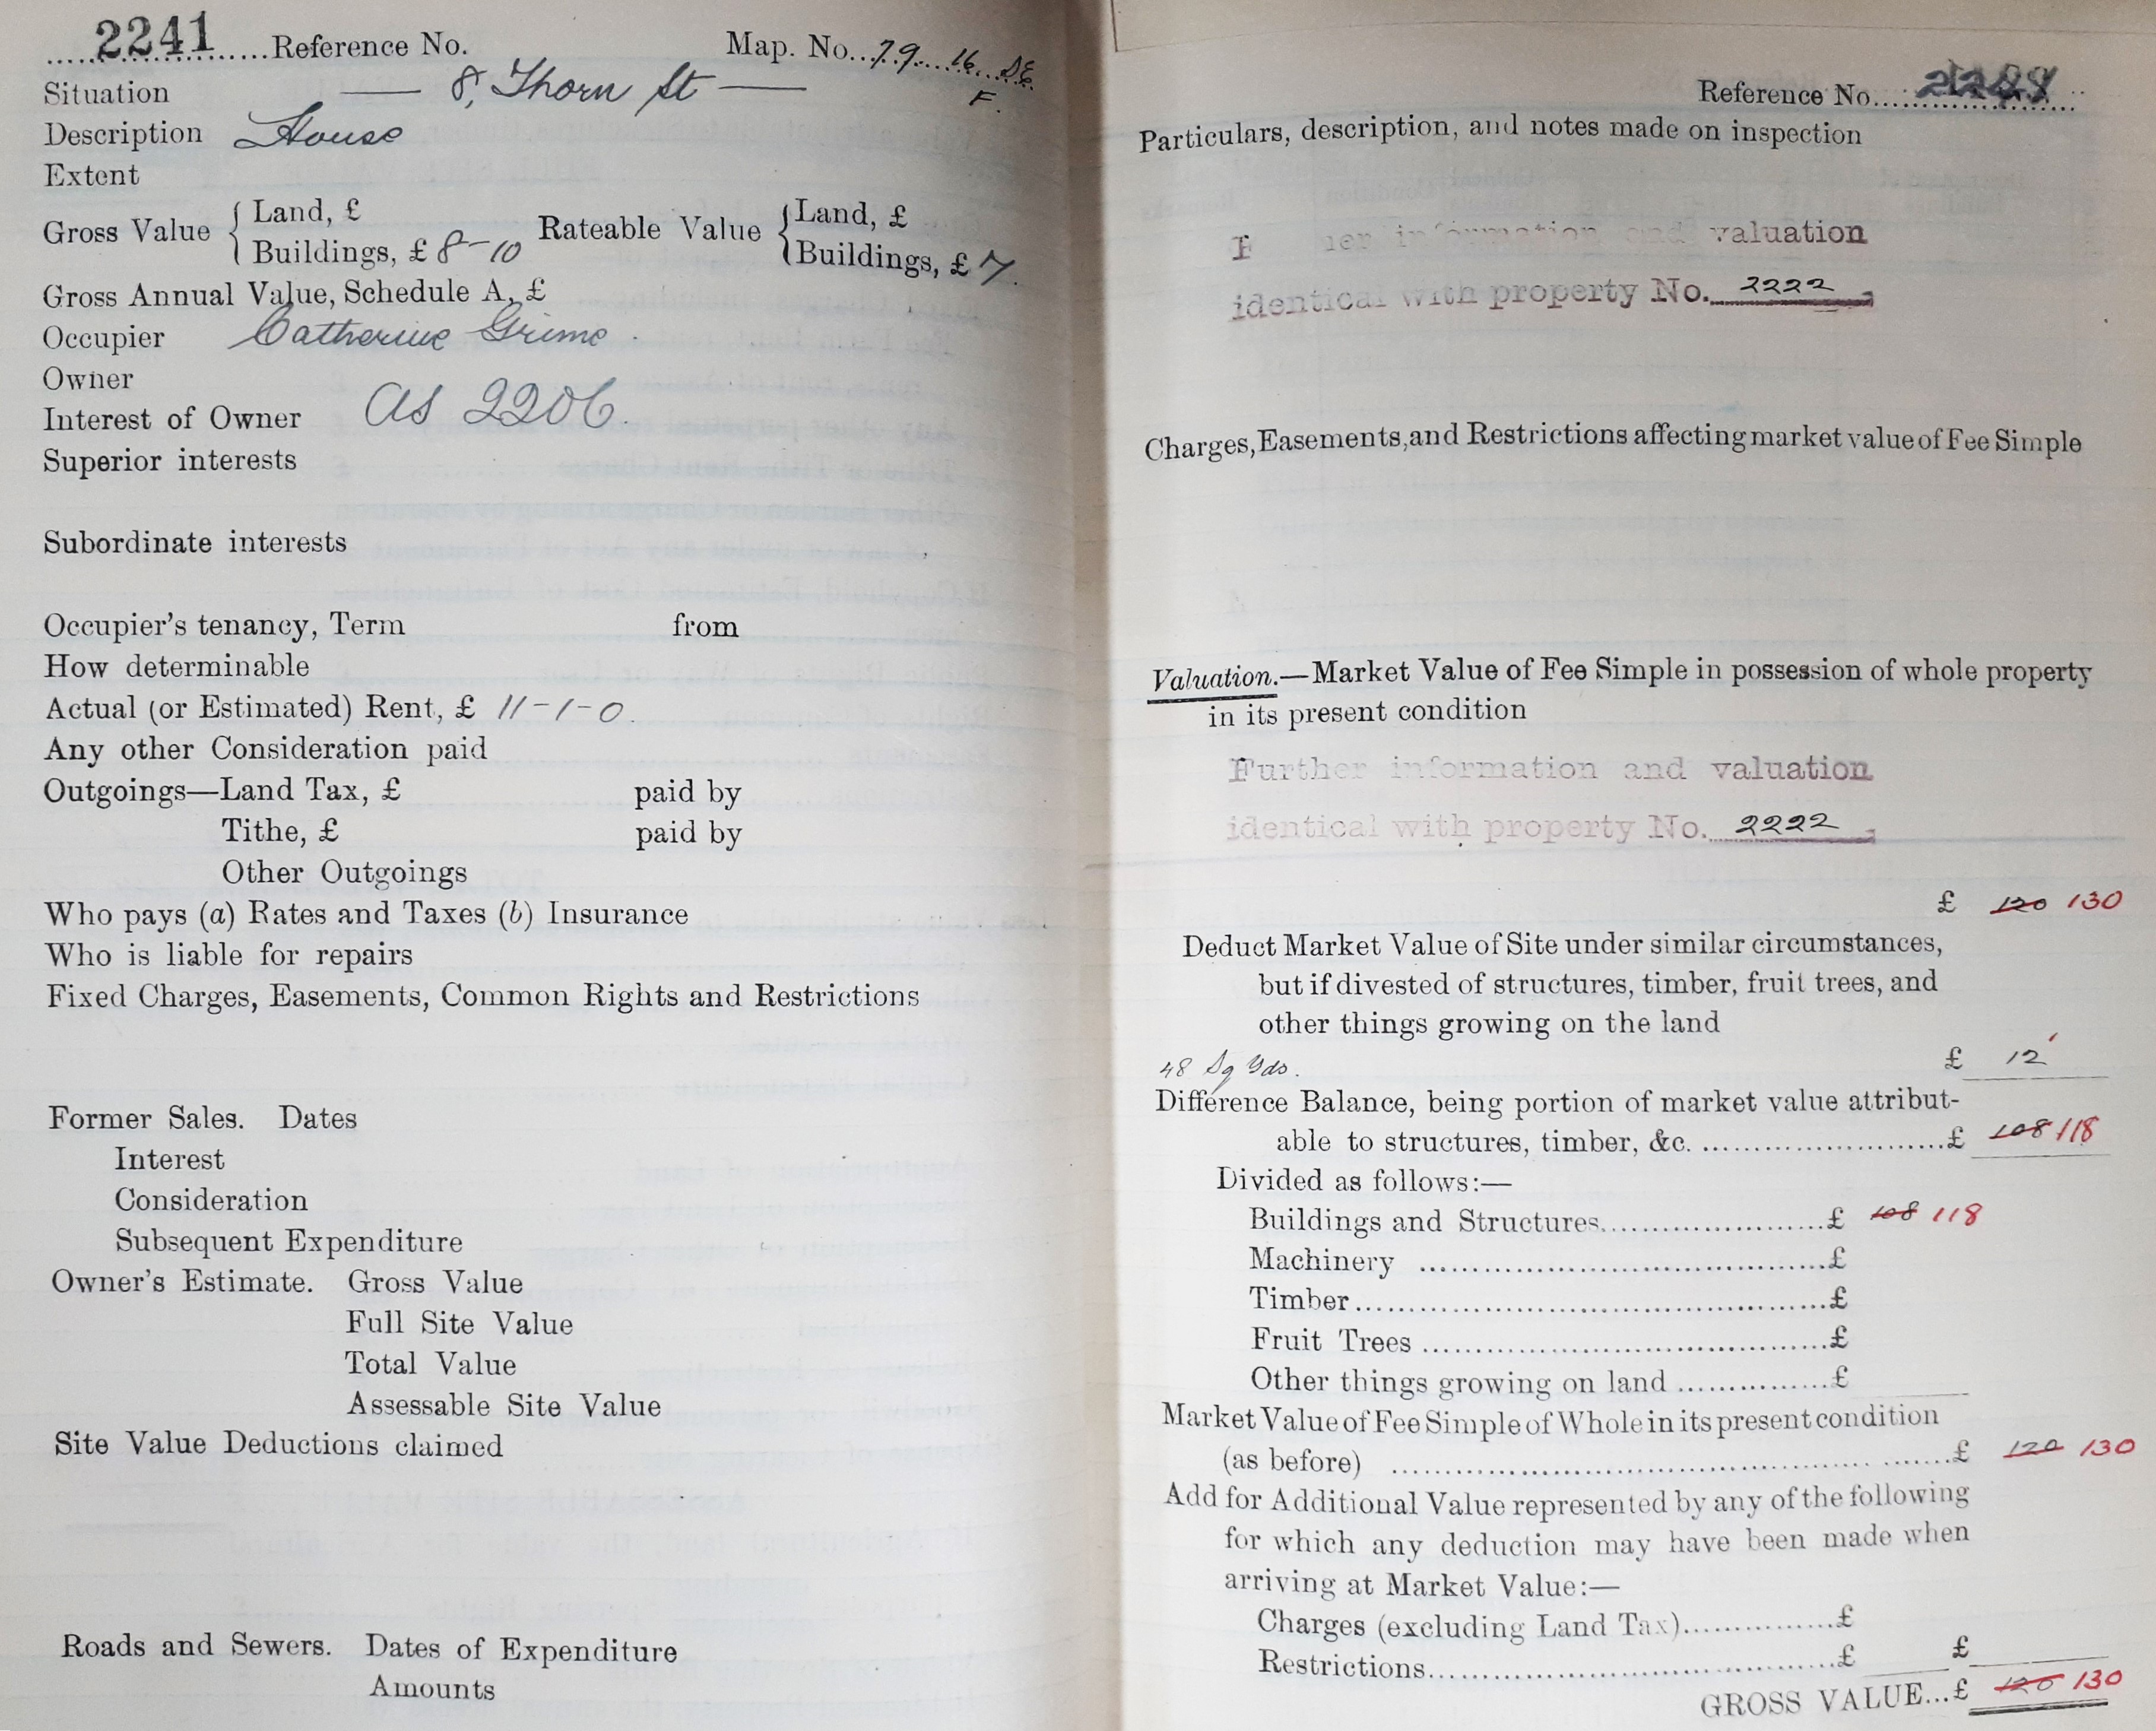 2241 Reference No. Map. No. 79 16 SE
F.
Situation — 8, Thorn St —
Description House
Extent
Gross Value { Land, £ Rateable Value { Land, £
Buildings, £ 8-10 Buildings, £ 7.
Gross Annual Value, Schedule A, £
Occupier Catherine Grime.
Owner
Interest of Owner as 2206.
Superior interests
Subordinate interests
Occupier's tenancy, Term from
How determinable
Actual (or Estimated) Rent, £ 11-1-0.
Any other Consideration paid
Outgoings—Land Tax, £ paid by
Tithe, £ paid by
Other Outgoings
Who pays (a) Rates and Taxes (b) Insurance
Who is liable for repairs
Fixed Charges, Easements, Common Rights and Restrictions
Former Sales. Dates
Interest
Consideration
Subsequent Expenditure
Owner's Estimate. Gross Value
Full Site Value
Total Value
Assessable Site Value
Site Value Deductions claimed
Roads and Sewers. Dates of Expenditure
Amounts
Reference No.
Particulars, description, and notes made on inspection
information and valuation
identical with property No. 2222
Charges, Easements, and Restrictions affecting market value of Fee Simple
Valuation.—Market Value of Fee Simple in possession of whole property
in its present condition
Further information and valuation
identical with property No. 2222
£ 120 130
Deduct Market Value of Site under similar circumstances,
but if divested of structures, timber, fruit trees, and
other things growing on the land
48 Sq Yds. £ 12
Difference Balance, being portion of market value attribut-
able to structures, timber, &c. £ 108 118
Divided as follows:—
Buildings and Structures £ 108 118
Machinery £
Timber £
Fruit Trees £
Other things growing on land £
Market Value of Fee Simple of Whole in its present condition
(as before) £ 120 130
Add for Additional Value represented by any of the following
for which any deduction may have been made when
arriving at Market Value:—
Charges (excluding Land Tax) £
Restrictions £ £
GROSS VALUE...£ 120 130